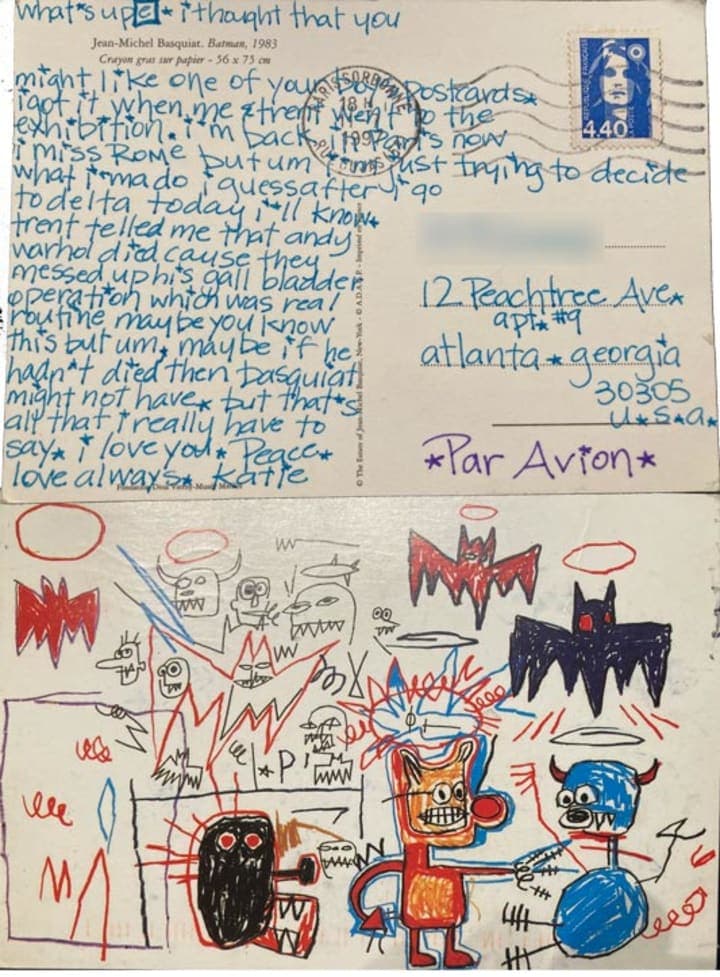 what*s up e * i thought that you
Jean-Michel Basquiat. Batman, 1983
Crayon gras sur papier - 56 x 75 cm
might like one of your boy postcards*
i got it when me & trent went to the
exhibition. i'm back in Paris now
i miss ROME but um, just trying to decide
what i*ma do i guess after i go
to delta today i*ll know*
trent telled me that andy
warhol died cause they
messed up his gall bladder
operation which was real
routine maybe you know
this but um, maybe if he
hadn*t died then basquiat
might not have* but that*s
all that i really have to
say* i love you* Peace*
love always* Katie
PARIS SORBONNE
18 H
REPUBLIQUE FRANÇAISE
4.40
LA POSTE
12 Peachtree Ave*
apt* #9
atlanta * georgia
30305
u*s*a*
*Par Avion*
© The Estate of Jean-Michel Basquiat, New-York - © A.D.A.G.P. - Imprimé en
Fondation Dina Vierny-Musée Maillol
*P